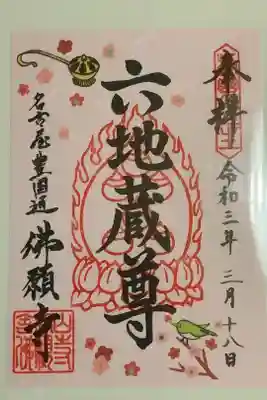 奉拝
令和三年 三月十八日
六地蔵尊
名古屋豊国通
佛願寺